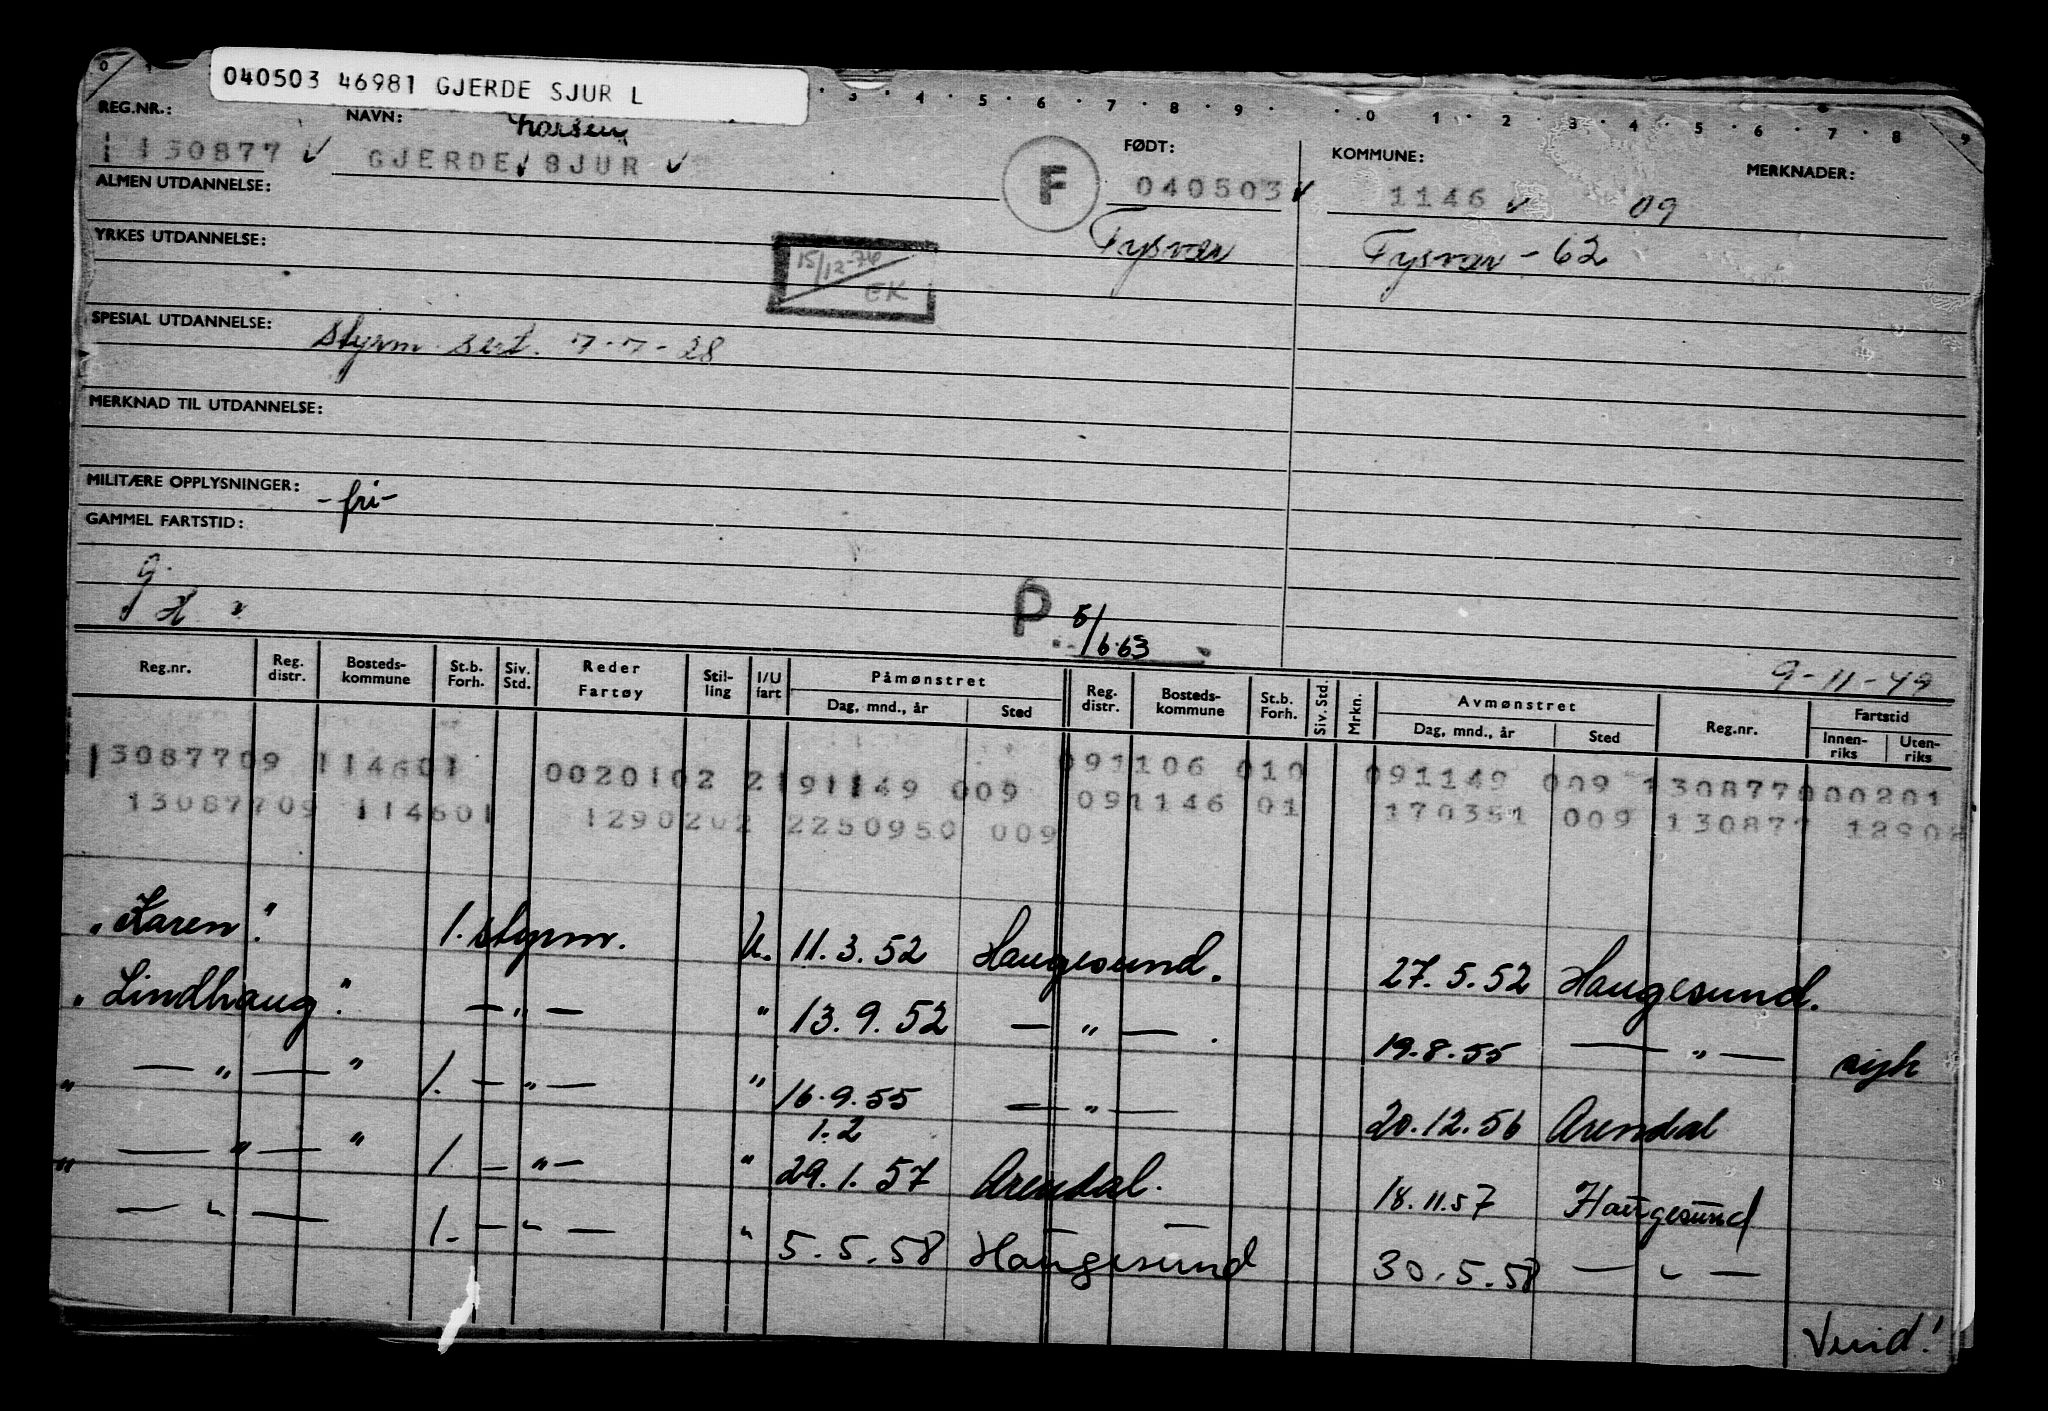 040503 46981 GJERDE SJUR L
REG.NR.: NAVN: Larsen FØDT: KOMMUNE: MERKNADER:
130877 GJERDE, SJUR F 040503 1146 09
ALMEN UTDANNELSE:
Tysvær Tysvær - 62
YRKES UTDANNELSE:
15/12-76
EK
SPESIAL UTDANNELSE: Styrm sert. 7-7-28
MERKNAD TIL UTDANNELSE:
MILITÆRE OPPLYSNINGER: -fri-
GAMMEL FARTSTID:
P 5/6.63
9-11-49
Reg.nr. Reg. distr. Bosteds-kommune St.b. Forh. Siv. Std. Reder Fartøy Stil-ling I/U fart Påmønstret Dag, mnd., år Sted Reg. distr. Bosteds-kommune St.b. Forh. Siv. Std. Mrkn. Avmønstret Dag, mnd., år Sted Reg.nr. Fartstid Innen-riks Uten-riks
13087709 114601 0020102 2191149 009 091106 010 091149 009 130877000201
13087709 114601 1290202 2250950 009 091146 01 170351 009 130877 12902
"Karen". 1. styrm. U. 11.3.52 Haugesund. 27.5.52 Haugesund.
"Lindhaug". — " — " 13.9.52 — " — . 19.8.55 — " — syk
" — " — " 1. — " — " 16.9.55 — " — 20.12.56 Arendal
1.2
" — " — " 1. — " — " 29.1.57 Arendal. 18.11.57 Haugesund
— " — 1. — " — " 5.5.58 Haugesund 30.5.58 — " —
Vend!